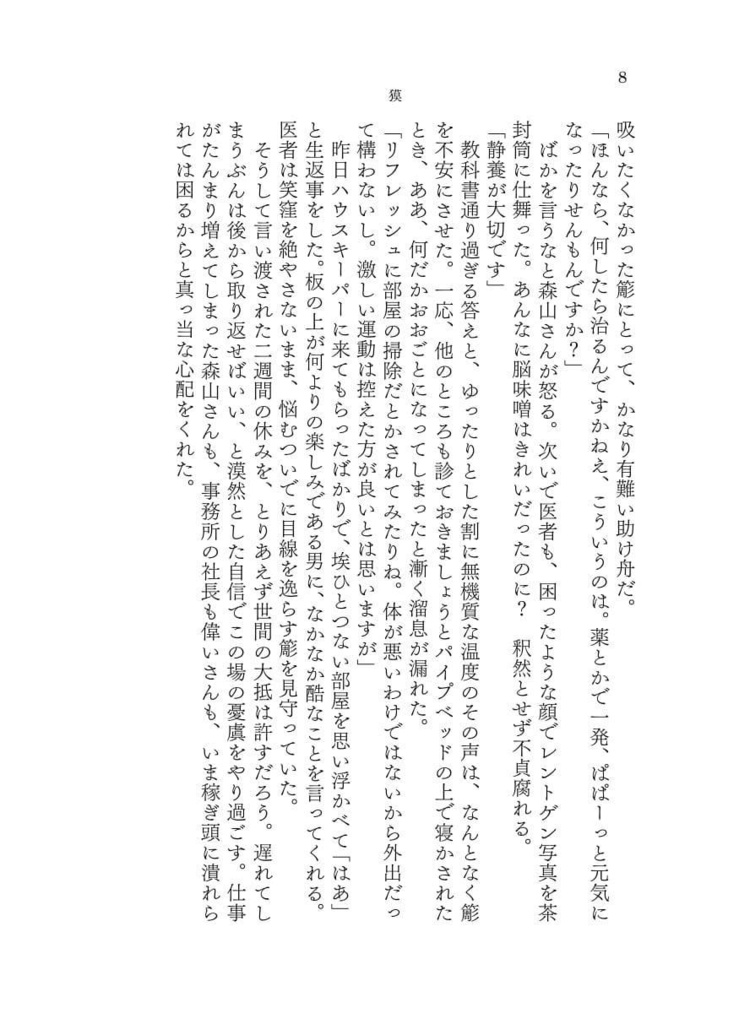 8
獏
吸いたくなかった簓にとって、かなり有難い助け舟だ。
「ほんなら、何したら治るんですかねえ、こういうのは。薬とかで一発、ぱぱーっと元気に
なったりせんもんですか?」
ばかを言うなと森山さんが怒る。次いで医者も、困ったような顔でレントゲン写真を茶
封筒に仕舞った。あんなに脳味噌はきれいだったのに? 釈然とせず不貞腐れる。
「静養が大切です」
教科書通り過ぎる答えと、ゆったりとした割に無機質な温度のその声は、なんとなく簓
を不安にさせた。一応、他のところも診ておきましょうとパイプベッドの上で寝かされた
とき、ああ、何だかおおごとになってしまったと漸く溜息が漏れた。
「リフレッシュに部屋の掃除だとかされてみたりね。体が悪いわけではないから外出だっ
て構わないし。激しい運動は控えた方が良いとは思いますが」
昨日ハウスキーパーに来てもらったばかりで、埃ひとつない部屋を思い浮かべて「はあ」
と生返事をした。板の上が何よりの楽しみである男に、なかなか酷なことを言ってくれる。
医者は笑窪を絶やさないまま、悩むついでに目線を逸らす簓を見守っていた。
そうして言い渡された二週間の休みを、とりあえず世間の大抵は許すだろう。遅れてし
まうぶんは後から取り返せばいい、と漠然とした自信でこの場の憂虞をやり過ごす。仕事
がたんまり増えてしまった森山さんも、事務所の社長も偉いさんも、いま稼ぎ頭に潰れら
れては困るからと真っ当な心配をくれた。